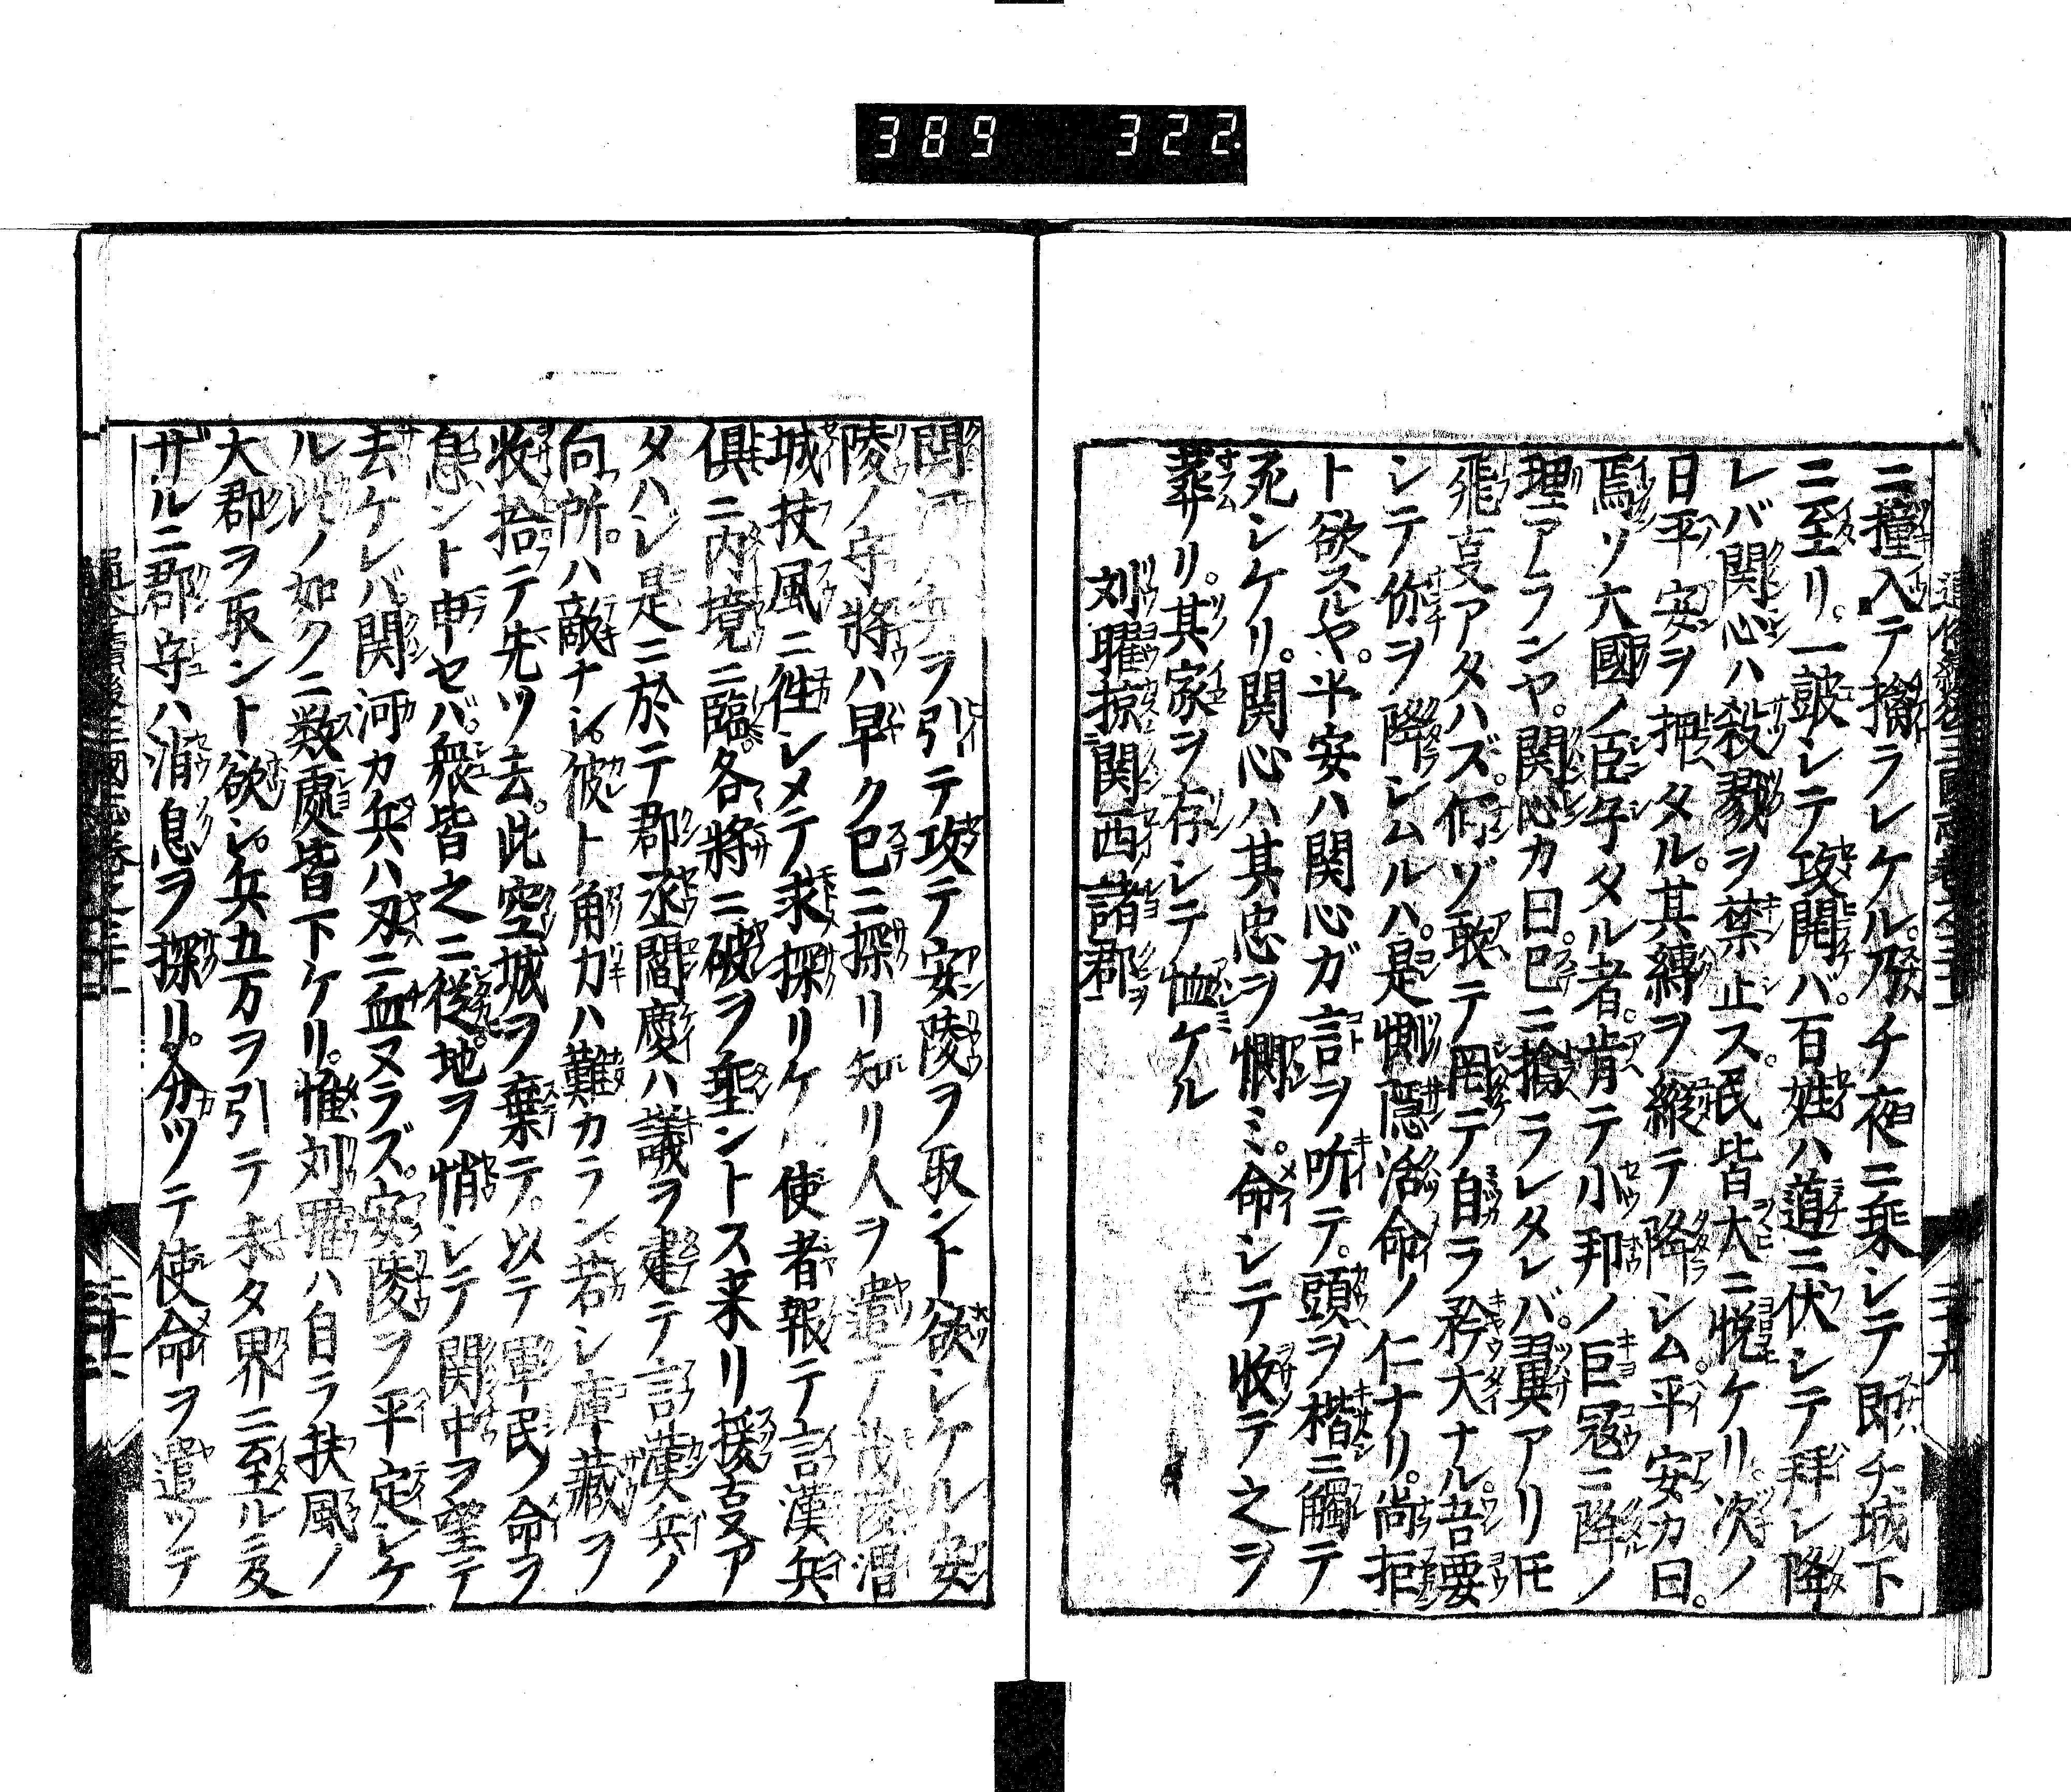 389 322
ニ撞入テ擒ラレケル。乃チ夜ニ乗シテ即チ城下
ニ至リ。一鼓シテ攻開バ。百姓ハ道ニ伏シテ拜シ降
レバ関心ハ殺戮ヲ禁止ス。民皆大ニ悦ケリ。次ノ
日平安ヲ押タル。其縛ヲ縦テ降シム。平安カ曰。
焉ソ大國ノ臣子タル者。肯テ小邦ノ巨冦ニ降ノ
理アランヤ。関心カ曰。已ニ擒ラレタレバ。翼アリモ
飛亙アタハズ。何ゾ敢テ罔テ自ラ矜大ナル。吾要
シテ你ヲ降シムルハ。是惻隠活命ノ仁ナリ。尚拒
ト欲スルヤ。平安ハ関心ガ言ヲ听テ。頭ヲ楷ニ觸テ
死シケリ。関心ハ其忠ヲ憫ミ。命シテ收テ之ヲ
葬リ。其家ヲ存シテ恤ケル
刘曜掠関西諸郡
関河ハ兵ヲ引テ攻テ安陵ヲ取ント欲シケル安
陵ノ守將ハ早ク已ニ探リ知リ人ヲ遣テ茂陵渭
城扶風ニ徃シメテ求探リケル使者報テ言漢兵
俱ニ内境ニ臨。各將ニ破ヲ垂ントス来リ援亙ア
タハシ是ニ於テ郡丞閻慶ハ議ヲ建テ言漢兵ノ
向所。ハ敵ナシ。彼ト角力ハ難カラン。若シ庫藏ヲ
收拾テ先ツ去。此空城ヲ棄テ。以テ軍民ノ命ヲ
息ント申セバ。衆皆之ニ從。地ヲ悄シテ関中ヲ望テ
去ケレバ関河カ兵ハ刃ニ血ヌラズ。安陵ヲ平定シケ
ル此ノ如クニ数處皆下ケリ。惟刘曜ハ自ラ扶風ノ
大郡ヲ取ント欲シ。兵五万ヲ引テ未タ界ニ至ルニ及
ザルニ郡守ハ消息ヲ探リ。分ツテ使命ヲ遣ツテ